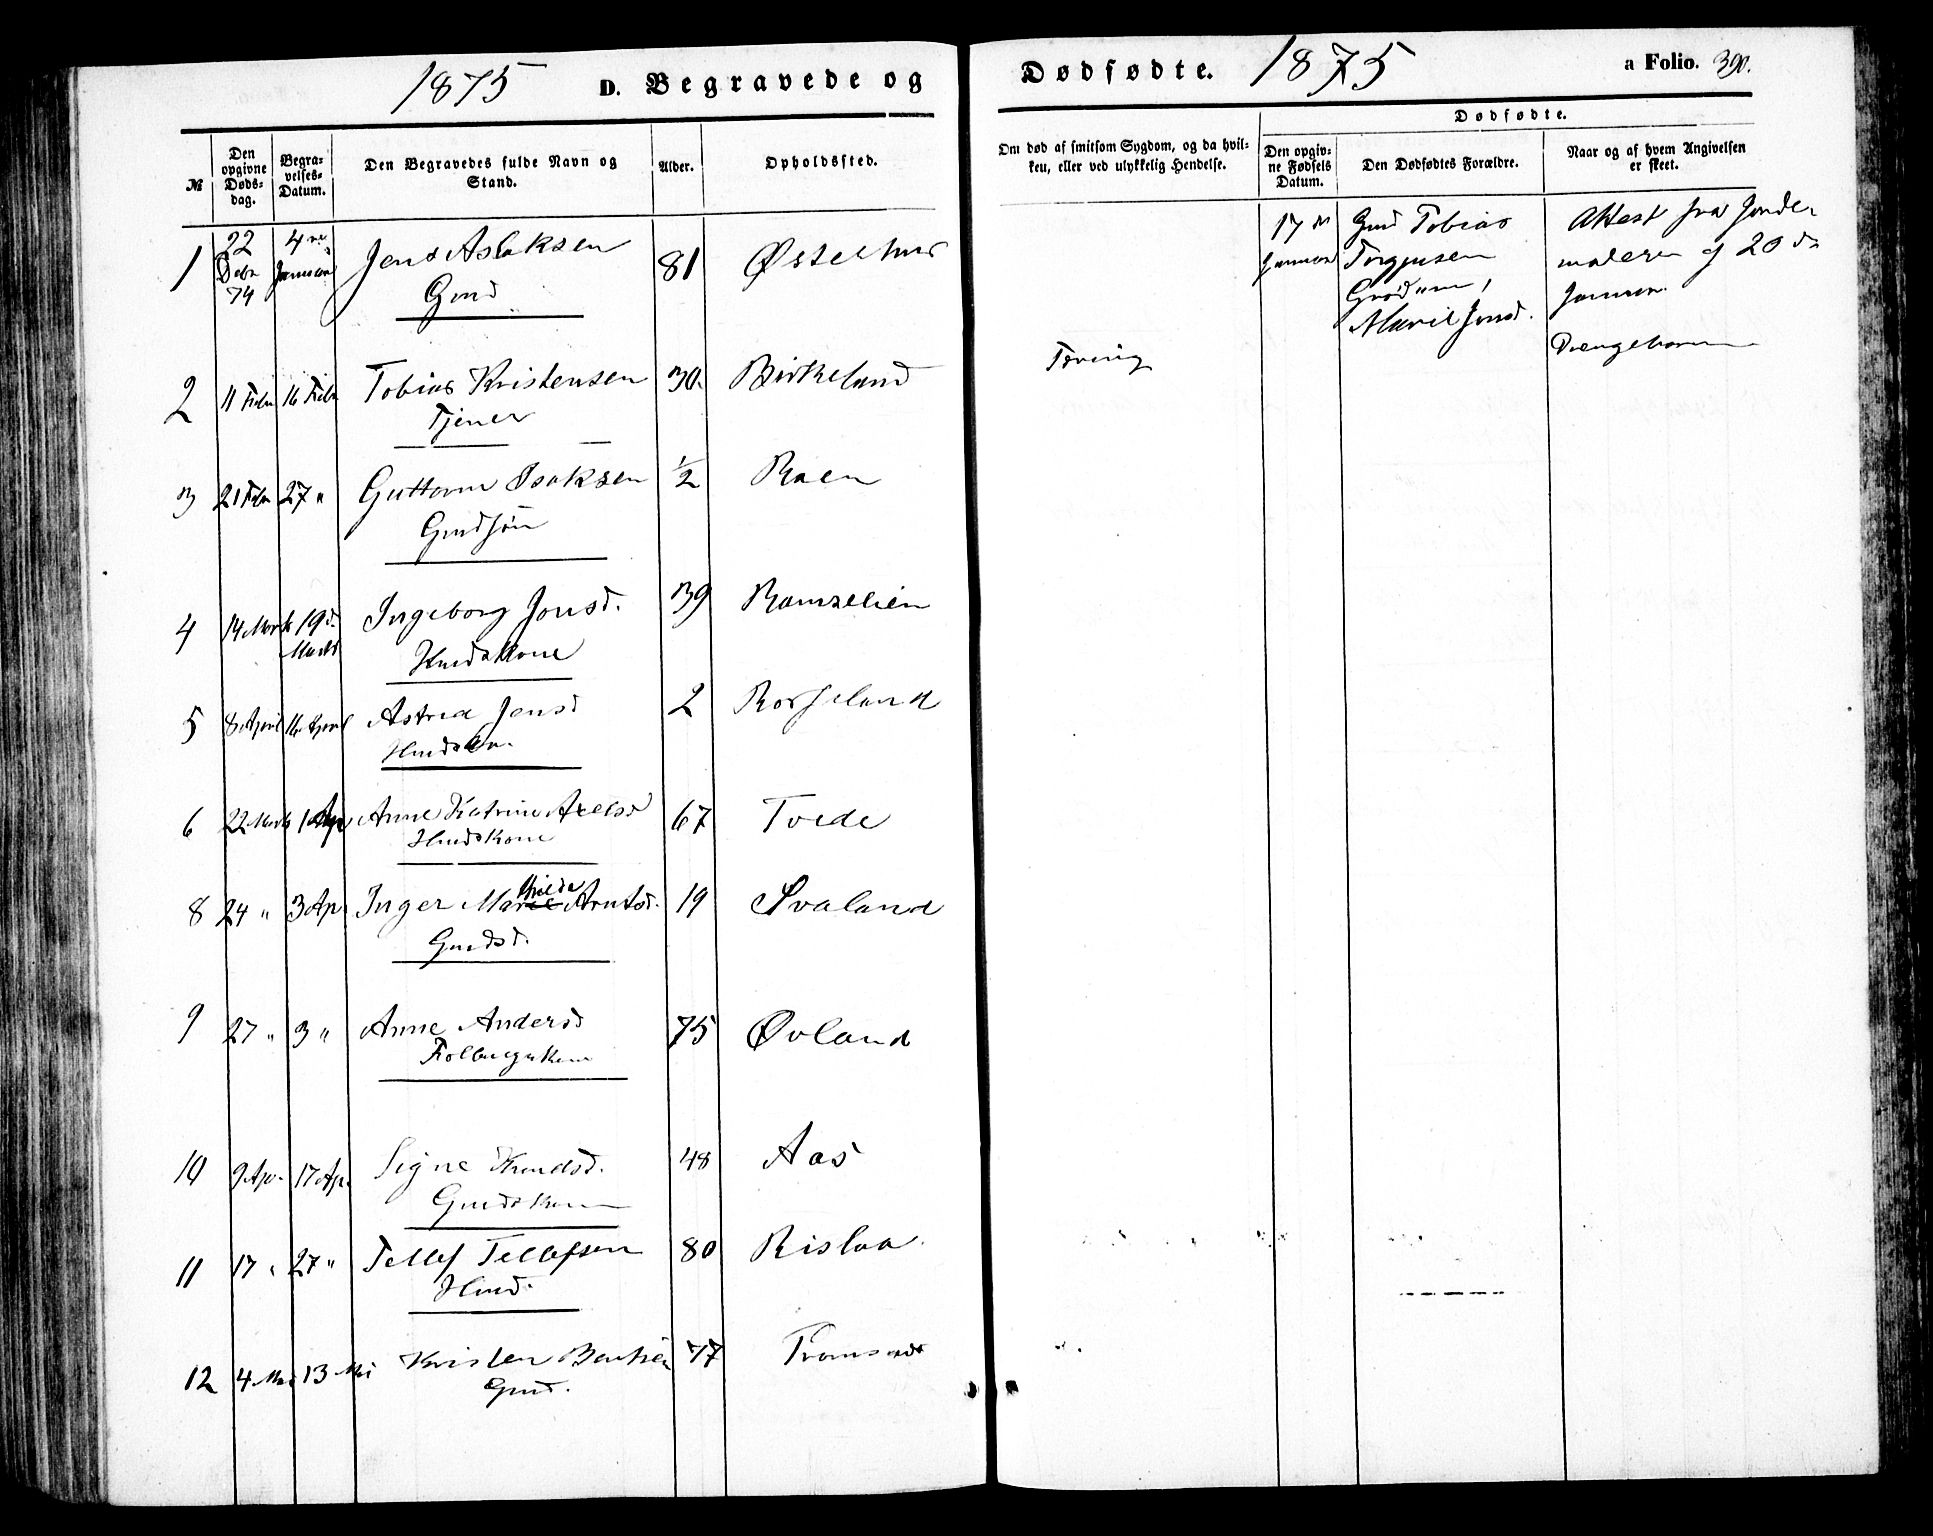 1875 D. Begravede og
№
Den opgivne Dødsdag.
Begravelses-Datum.
Den Begravedes fulde Navn og Stand.
Alder.
Opholdssted.
1 22 Debr 74 4de Januar Jens Aslaksen 81 Østelhus
Gmd
2 11 Febr 16 Febr Tobias Kristensen 30. Birkeland
Tjener
3 21 Febr 27 " Guttorm Isaksen 1/2 Raen
Gmdsøn
4 14 Marts 19 d. Marts Ingeborg Jonsd. 39 Ramselien
Hmdskone
5 8 April 16 April Astrea Jensd 2 Rosseland
6 22 Marts 1 Apr Anne Katrine Axelsd 67 Tvede
Hmdskone
8 24 " 3 Ap. Inger Marie Arntsd. 19 Svaland
Gmdsd.
9 27 " 3 " Anne Andersd 75 Øvland
10 9 Ap. 17 Ap. Signe Knudsd. 48 Aas
Gmdskone
11 17 " 27 " Tellef Tellefsen 80 Rislaa
Hmd.
12 4 Mai 13 Mai Kristen 77
Gmd.
Dødfødte. 1875 a Folio. 390.
Om død af smitsom Sygdom, og da hvilken, eller ved ulykkelig Hendelse.
Dødfødte.
Den opgivne Fødsels Datum.
Den Dødfødtes Forældre.
Naar og af hvem Angivelsen er skeet.
17 d Januar
Gmd Tobias
Torgjusen
Marie Jensd.
Attest fra Jorde-
moderen af 20 d
Januar
Drengebarn
Tæring